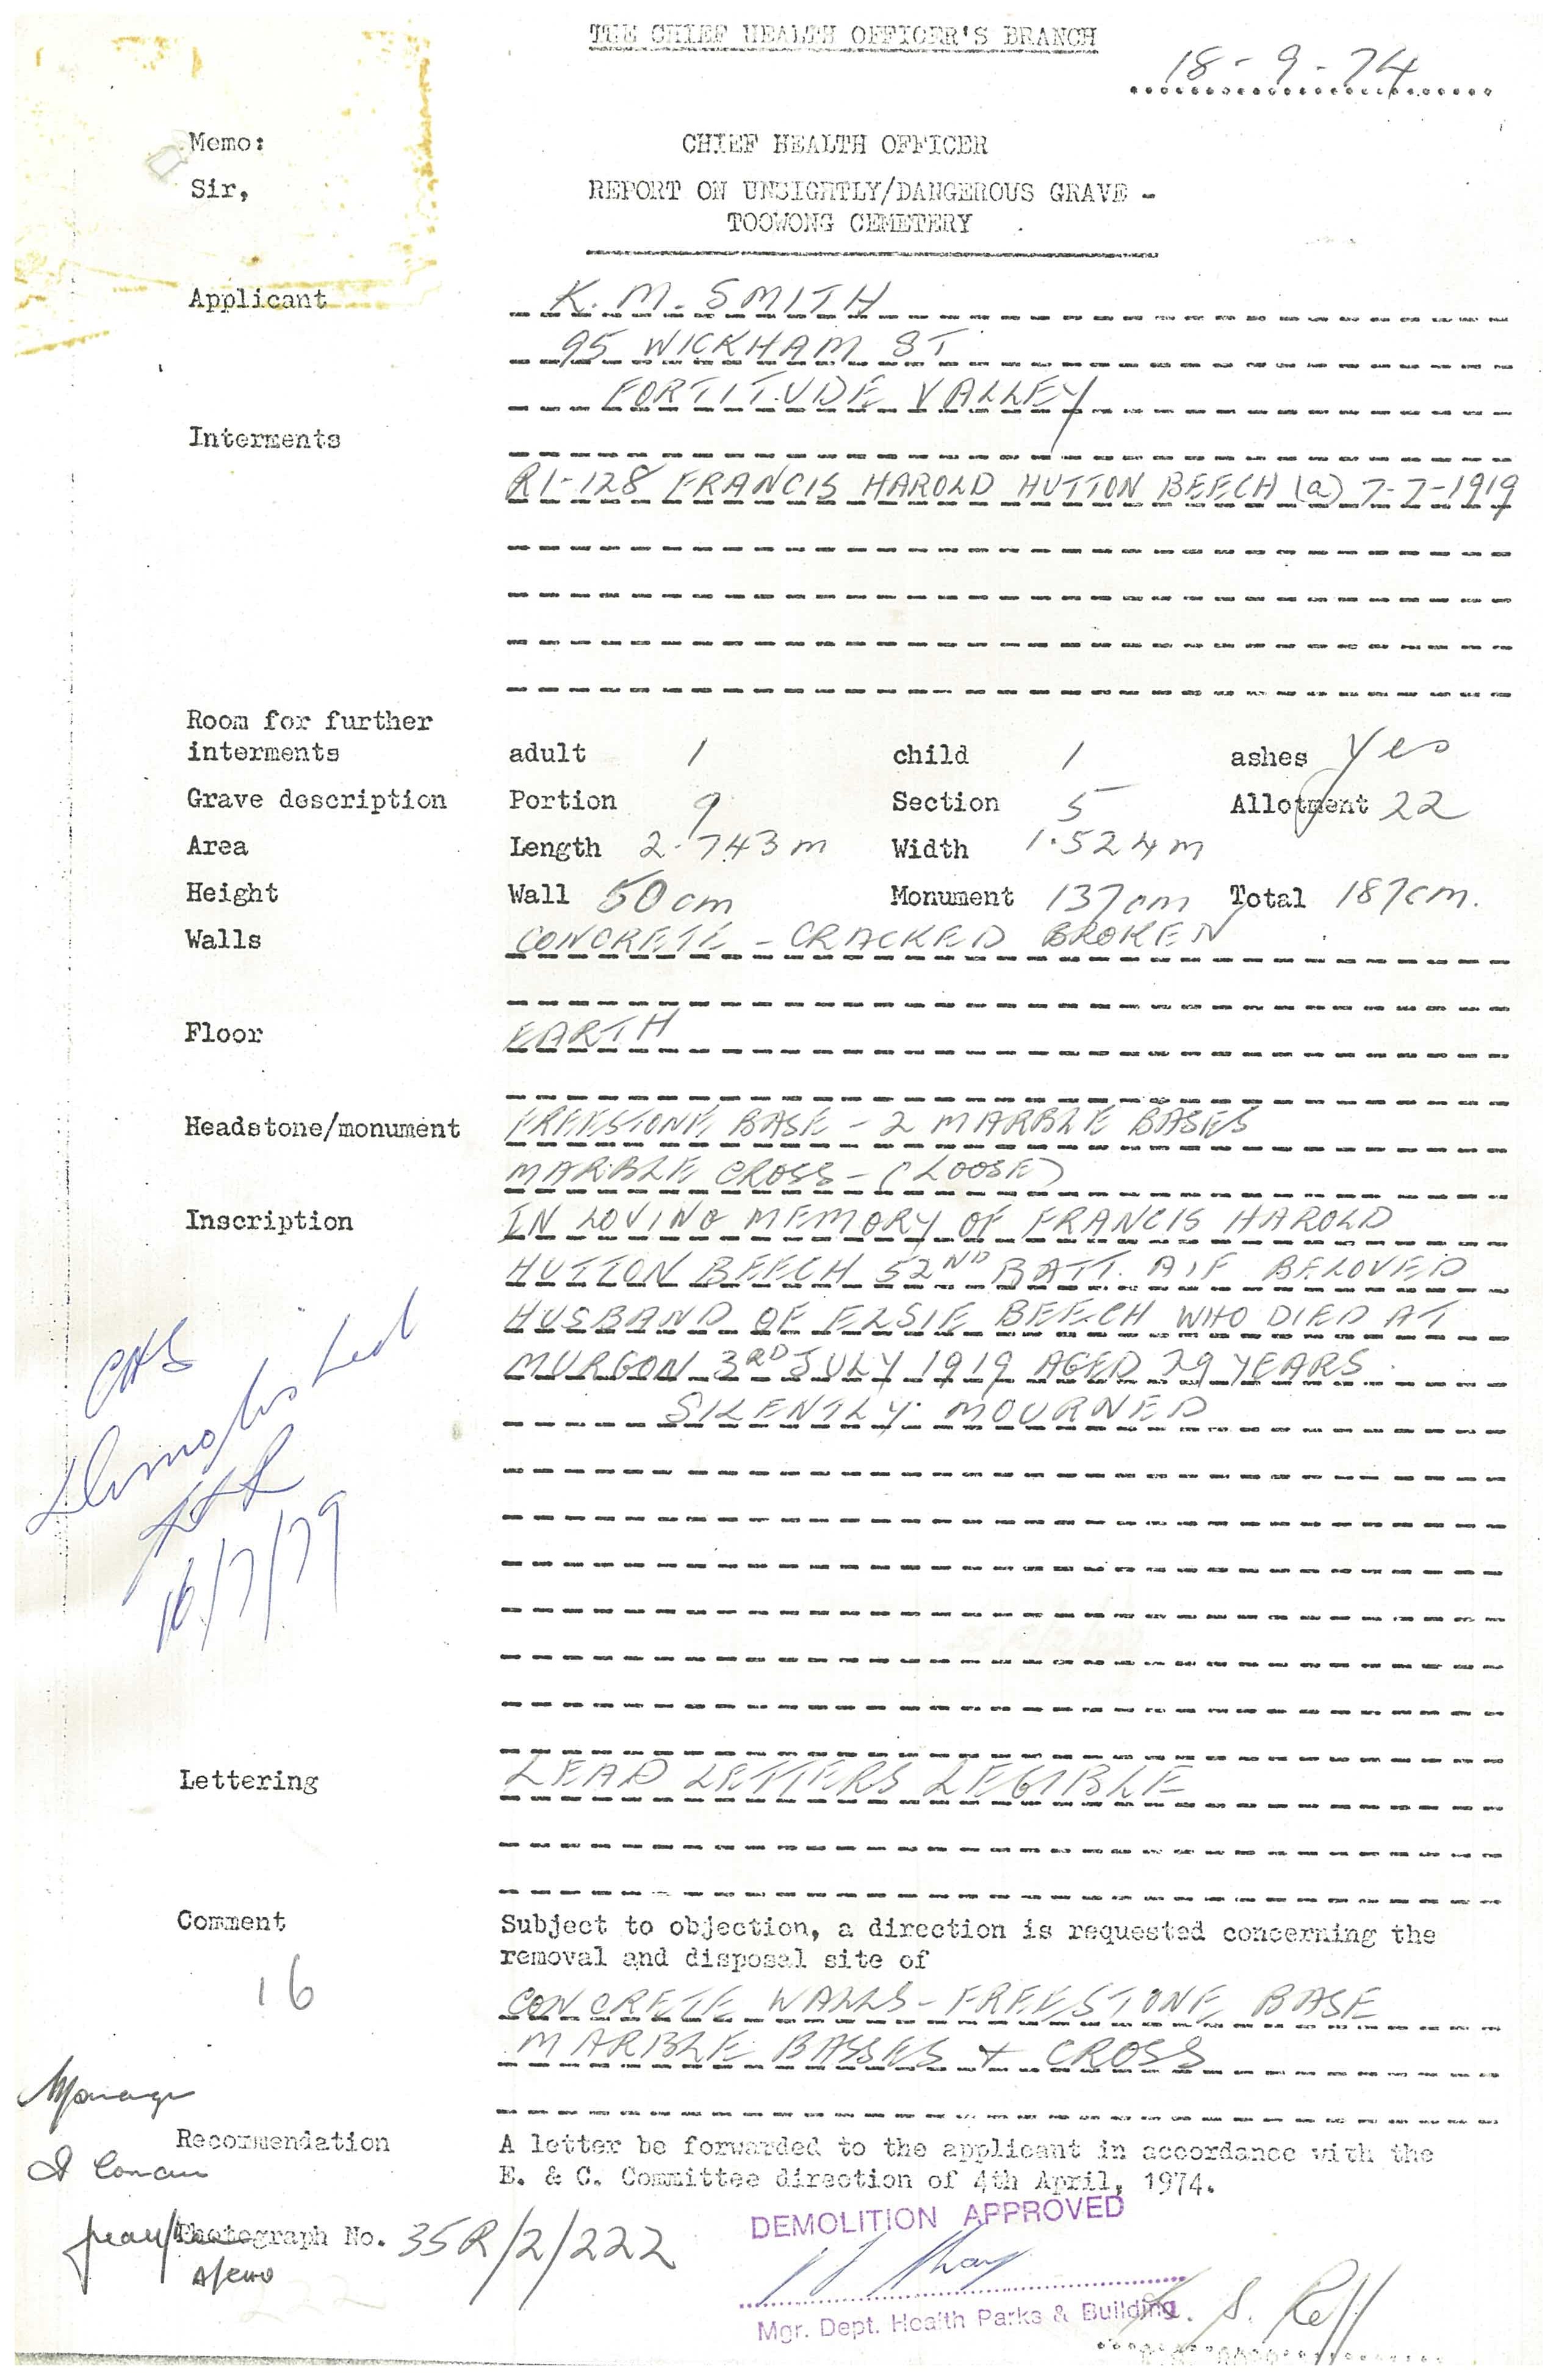 THE CHIEF HEALTH OFFICER'S BRANCH
18-9-74
Memo:
CHIEF HEALTH OFFICER
Sir,
REPORT ON UNSIGHTLY/DANGEROUS GRAVE -
TOOWONG CEMETERY
Applicant K. M. SMITH
95 WICKHAM ST
FORTITUDE VALLEY
Interments
R1-128 FRANCIS HAROLD HUTTON BEECH (a) 7-7-1919
Room for further
interments adult 1 child 1 ashes Yes
Grave description Portion 9 Section 5 Allotment 22
Area Length 2.743m Width 1.524m
Height Wall 50cm Monument 137cm Total 187cm.
Walls CONCRETE - CRACKED BROKEN
Floor EARTH
Headstone/monument FREESTONE BASE - 2 MARBLE BASES
MARBLE CROSS - (LOOSE)
Inscription IN LOVING MEMORY OF FRANCIS HAROLD
HUTTON BEECH 52ND BATT. AIF BELOVED
HUSBAND OF ELSIE BEECH WHO DIED AT
MURGON 3RD JULY 1919 AGED 29 YEARS.
SILENTLY MOURNED
Demolished
16/7/79
Lettering LEAD LETTERS LEGIBLE
Comment Subject to objection, a direction is requested concerning the
removal and disposal site of
16
CONCRETE WALLS - FREESTONE BASE
MARBLE BASSES + CROSS
Manager
Recommendation A letter be forwarded to the applicant in accordance with the
E. & C. Committee direction of 4th April, 1974.
I Concur
DEMOLITION APPROVED
Photograph No. 35R/2/222
A/CHO
Mgr. Dept. Health Parks & Building